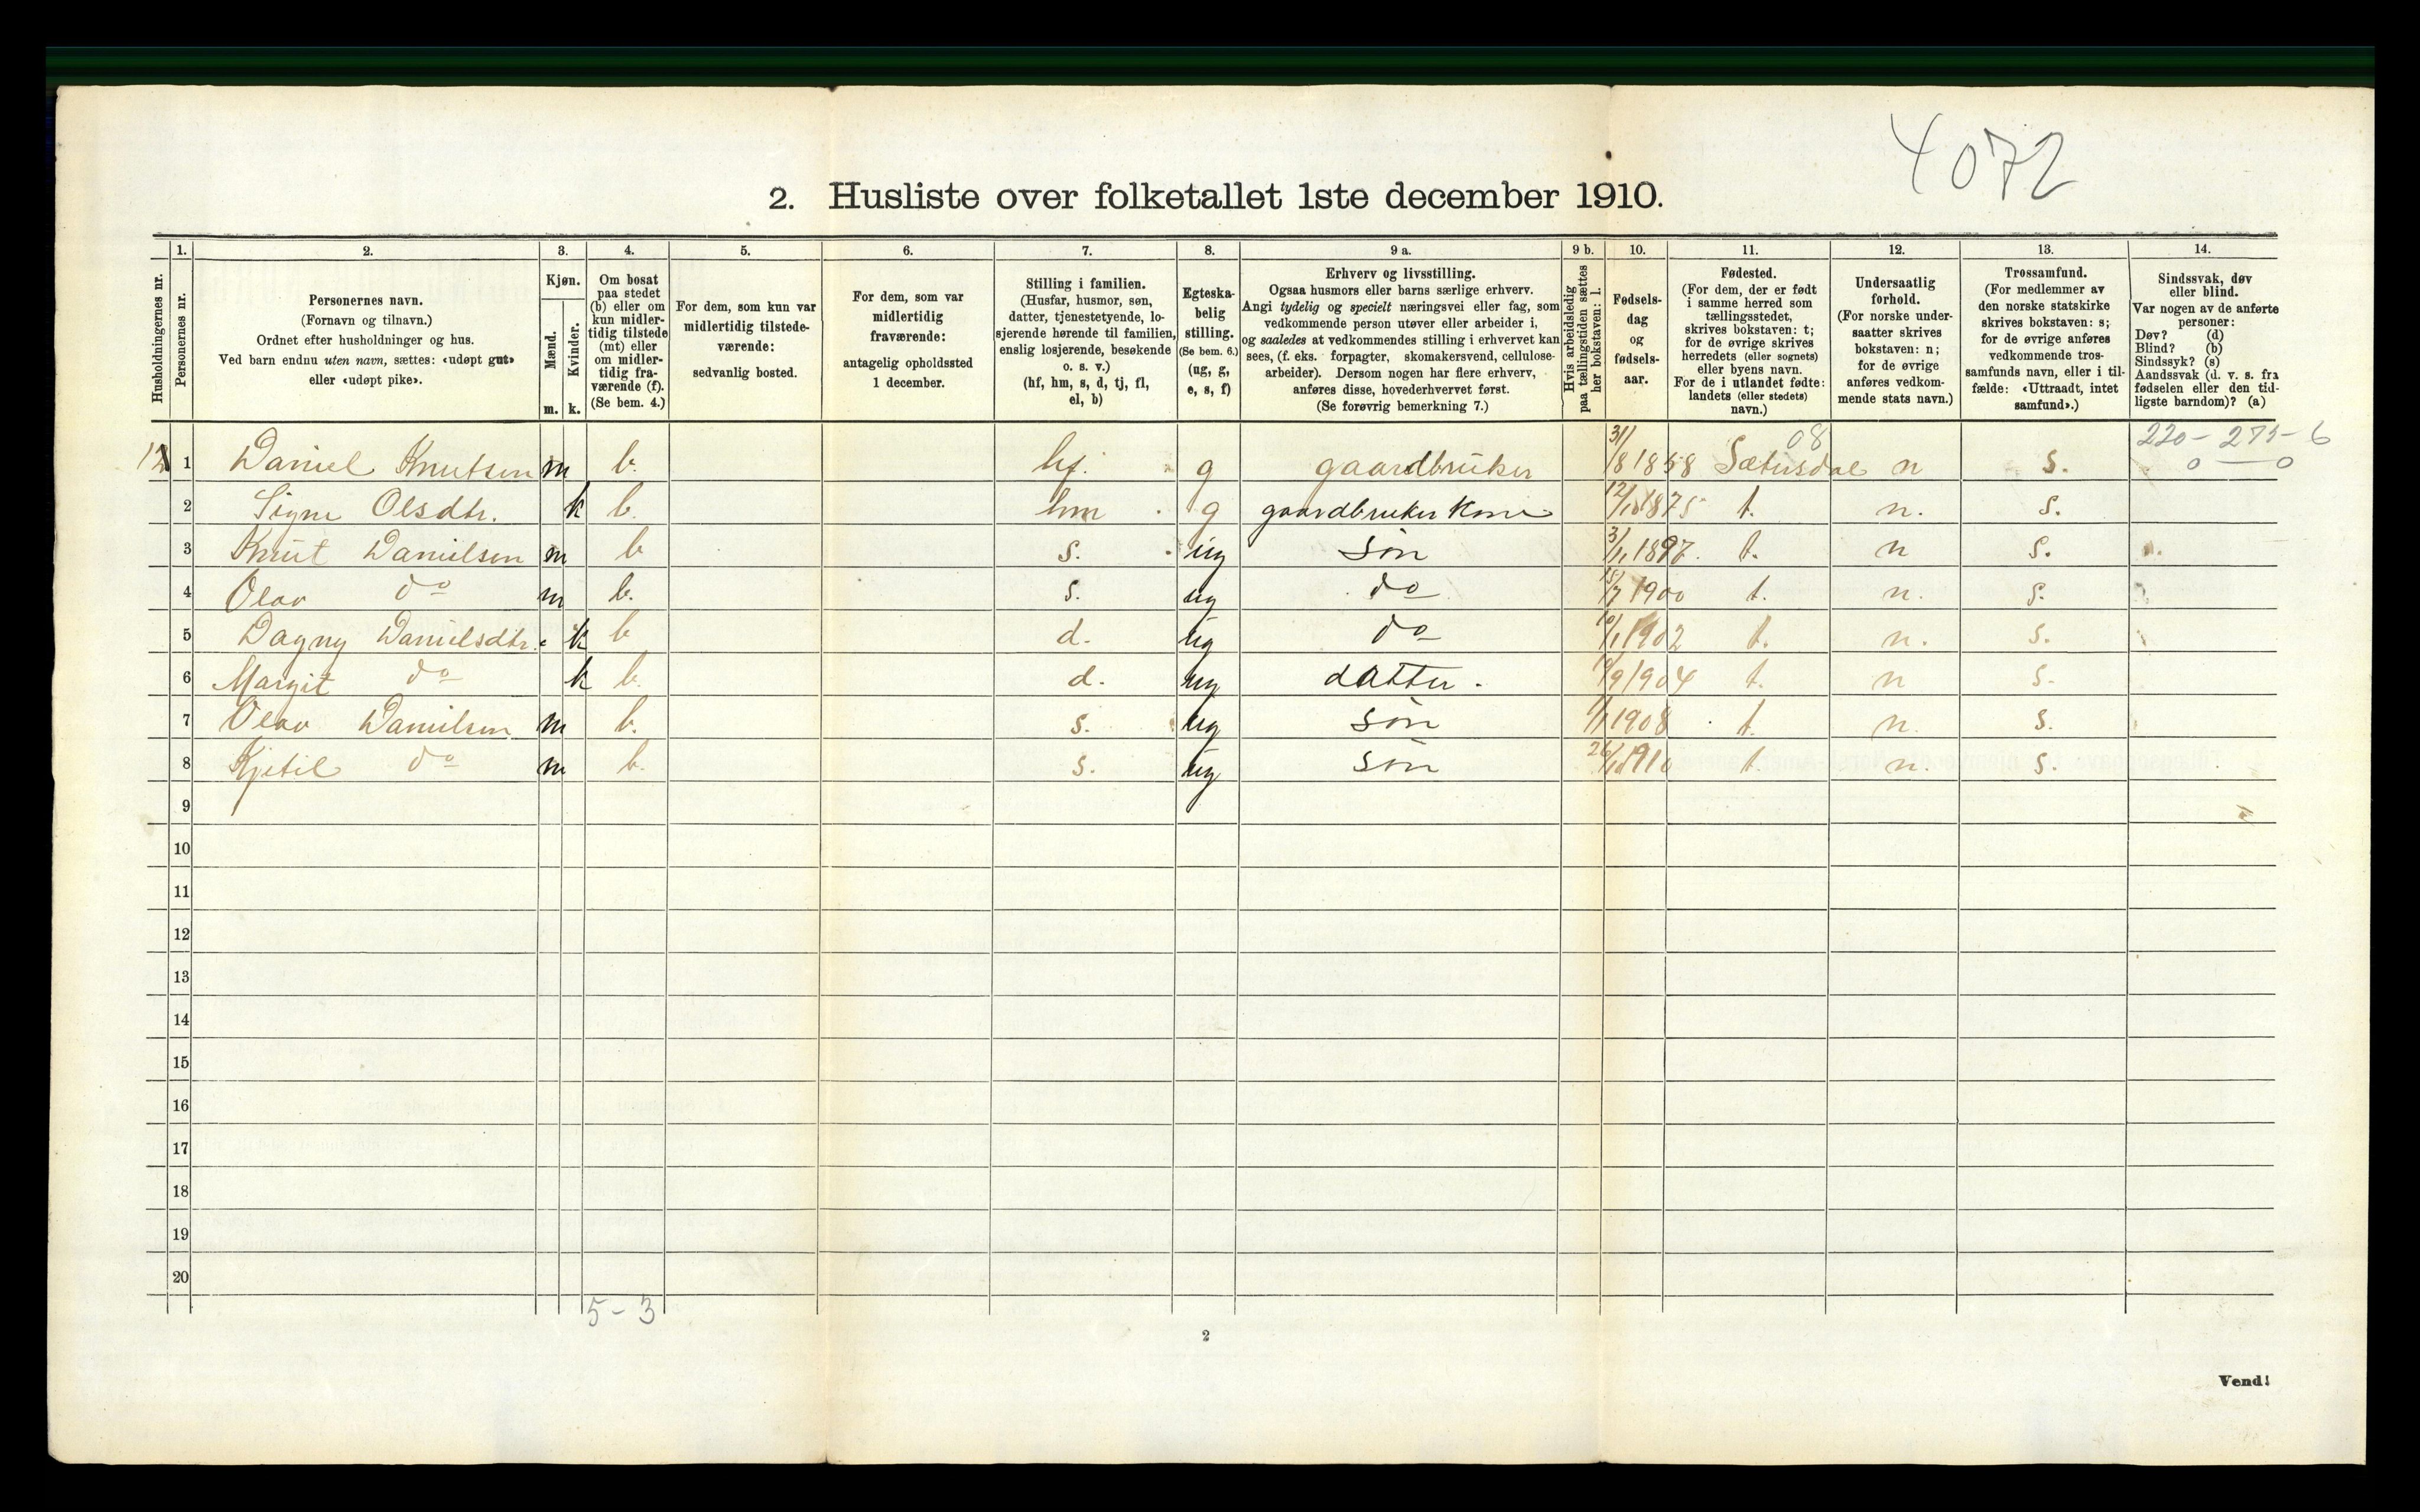 4072
2. Husliste over folketallet 1ste december 1910.
Husholdningernes nr.
1.
Personernes nr.
2.
Personernes navn.
(Fornavn og tilnavn.)
Ordnet efter husholdninger og hus.
Ved barn endnu uten navn, sættes: «udøpt gut»
eller «udøpt pike».
3.
Kjøn.
Mænd.
m.
Kvinder.
k.
4.
Om bosat
paa stedet
(b) eller om
kun midler-
tidig tilstede
(mt) eller
om midler-
tidig fra-
værende (f).
(Se bem. 4.)
5.
For dem, som kun var
midlertidig tilstede-
værende:
sedvanlig bosted.
6.
For dem, som var
midlertidig
fraværende:
antagelig opholdssted
1 december.
7.
Stilling i familien.
(Husfar, husmor, søn,
datter, tjenestetyende, lo-
sjerende hørende til familien,
enslig losjerende, besøkende
o. s. v.)
(hf, hm, s, d, tj, fl,
el, b)
8.
Egteska-
belig
stilling.
(Se bem. 6.)
(ug, g,
e, s, f)
9 a.
Erhverv og livsstilling.
Ogsaa husmors eller barns særlige erhverv.
Angi tydelig og specielt næringsvei eller fag, som
vedkommende person utøver eller arbeider i,
og saaledes at vedkommendes stilling i erhvervet kan
sees, (f. eks. forpagter, skomakersvend, cellulose-
arbeider). Dersom nogen har flere erhverv,
anføres disse, hovederhvervet først.
(Se forøvrig bemerkning 7.)
9 b.
Hvis arbeidsledig
paa tællingstiden sættes
her bokstaven: l.
10.
Fødsels-
dag
og
fødsels-
aar.
11.
Fødested.
(For dem, der er født
i samme herred som
tællingsstedet,
skrives bokstaven: t;
for de øvrige skrives
herredets (eller sognets)
eller byens navn.
For de i utlandet fødte:
landets (eller stedets)
navn.)
12.
Undersaatlig
forhold.
(For norske under-
saatter skrives
bokstaven: n;
for de øvrige
anføres vedkom-
mende stats navn.)
13.
Trossamfund.
(For medlemmer av
den norske statskirke
skrives bokstaven: s;
for de øvrige anføres
vedkommende tros-
samfunds navn, eller i til-
fælde: «Uttraadt, intet
samfund».)
14.
Sindssvak, døv
eller blind.
Var nogen av de anførte
personer:
Døv? (d)
Blind? (b)
Sindssyk? (s)
Aandssvak (d. v. s. fra
fødselen eller den tid-
ligste barndom)? (a)
08 220 - 275 - 6
0 — 0
1 Daniel Knutsen m b. hf. g gaardbruker 31/8 1858 Sætersdal n s.
2 Signe Olsdtr. k b. hm g gaardbruker Kone 1875 t. n. s.
3 Knut Danielsen m b s. ug Søn 3/11 1897. t. n s.
4 Olav do m b. s. ug do 15/7 1900 t. n. s.
5 Dagny Danielsdtr. k b d. ug do 10/1 1902 t. n. s.
6 Margit do k b. d. ug datter. 9 1904 t. n s.
7 Olav Danielsen m b. s. ug Søn 1908 t. n. s.
8 Kjetil do m b. s. ug Søn 26 1910 t. n. s.
9
10
11
12
13
14
15
16
17
18
19
20
5 - 3
2
Vend!